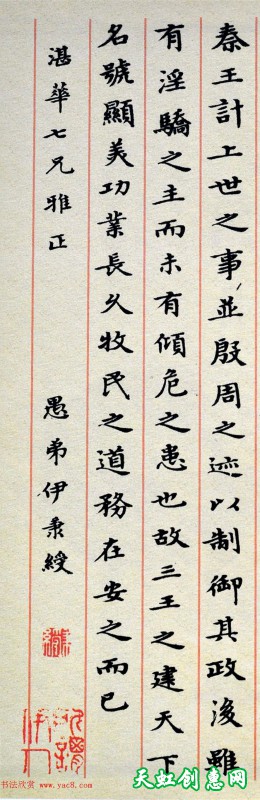 秦王計上世之事並殷周之迹以制御其政後雖
有淫驕之主而未有傾危之患也故三王之建天下
名號顯美功業長久牧民之道務在安之而已
湛華七兄雅正
愚弟伊秉綬
书法欣赏 www.yac8.com
天虹创惠网